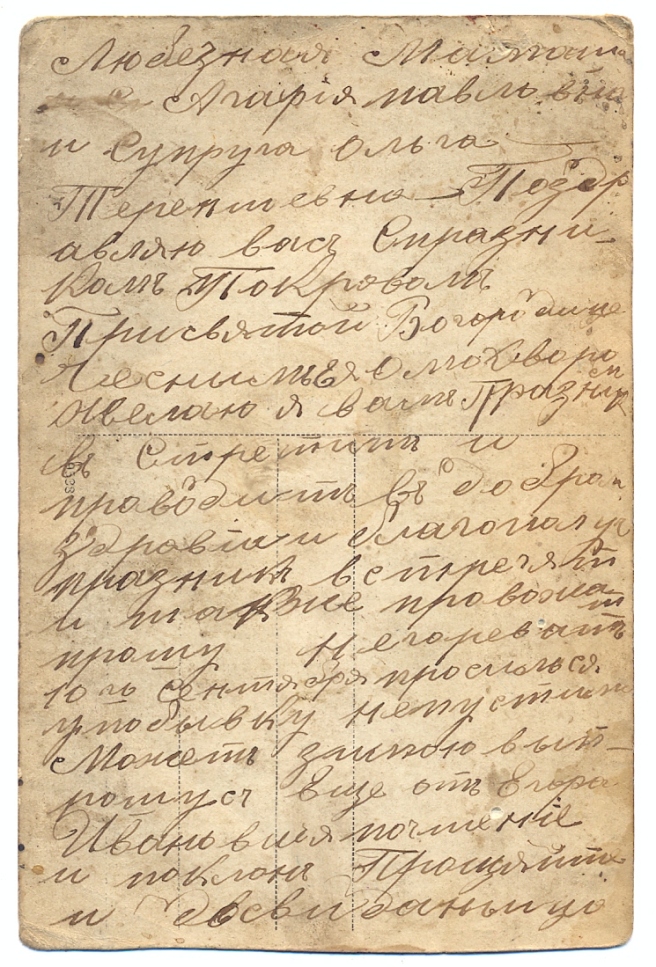 Любезная Мамаша
Агарія павловна
и Супруга Ольга
Терентевна Поздр
авляю васъ Спразни
комъ Покровомъ
Присвятой Богородице
Желаю я вамъ Празник
въ Стретить и
проводить въ добром
здровіи и благополуч
празникъ встречят
и также провожат
прошу негоревать
10го сентября просилься
упобывку непустили
Можетъ зимою вып
рошусь Еще отъ Егора
Ивановича почтеніе
и поклонъ Прощяйте
и досвиданьицо